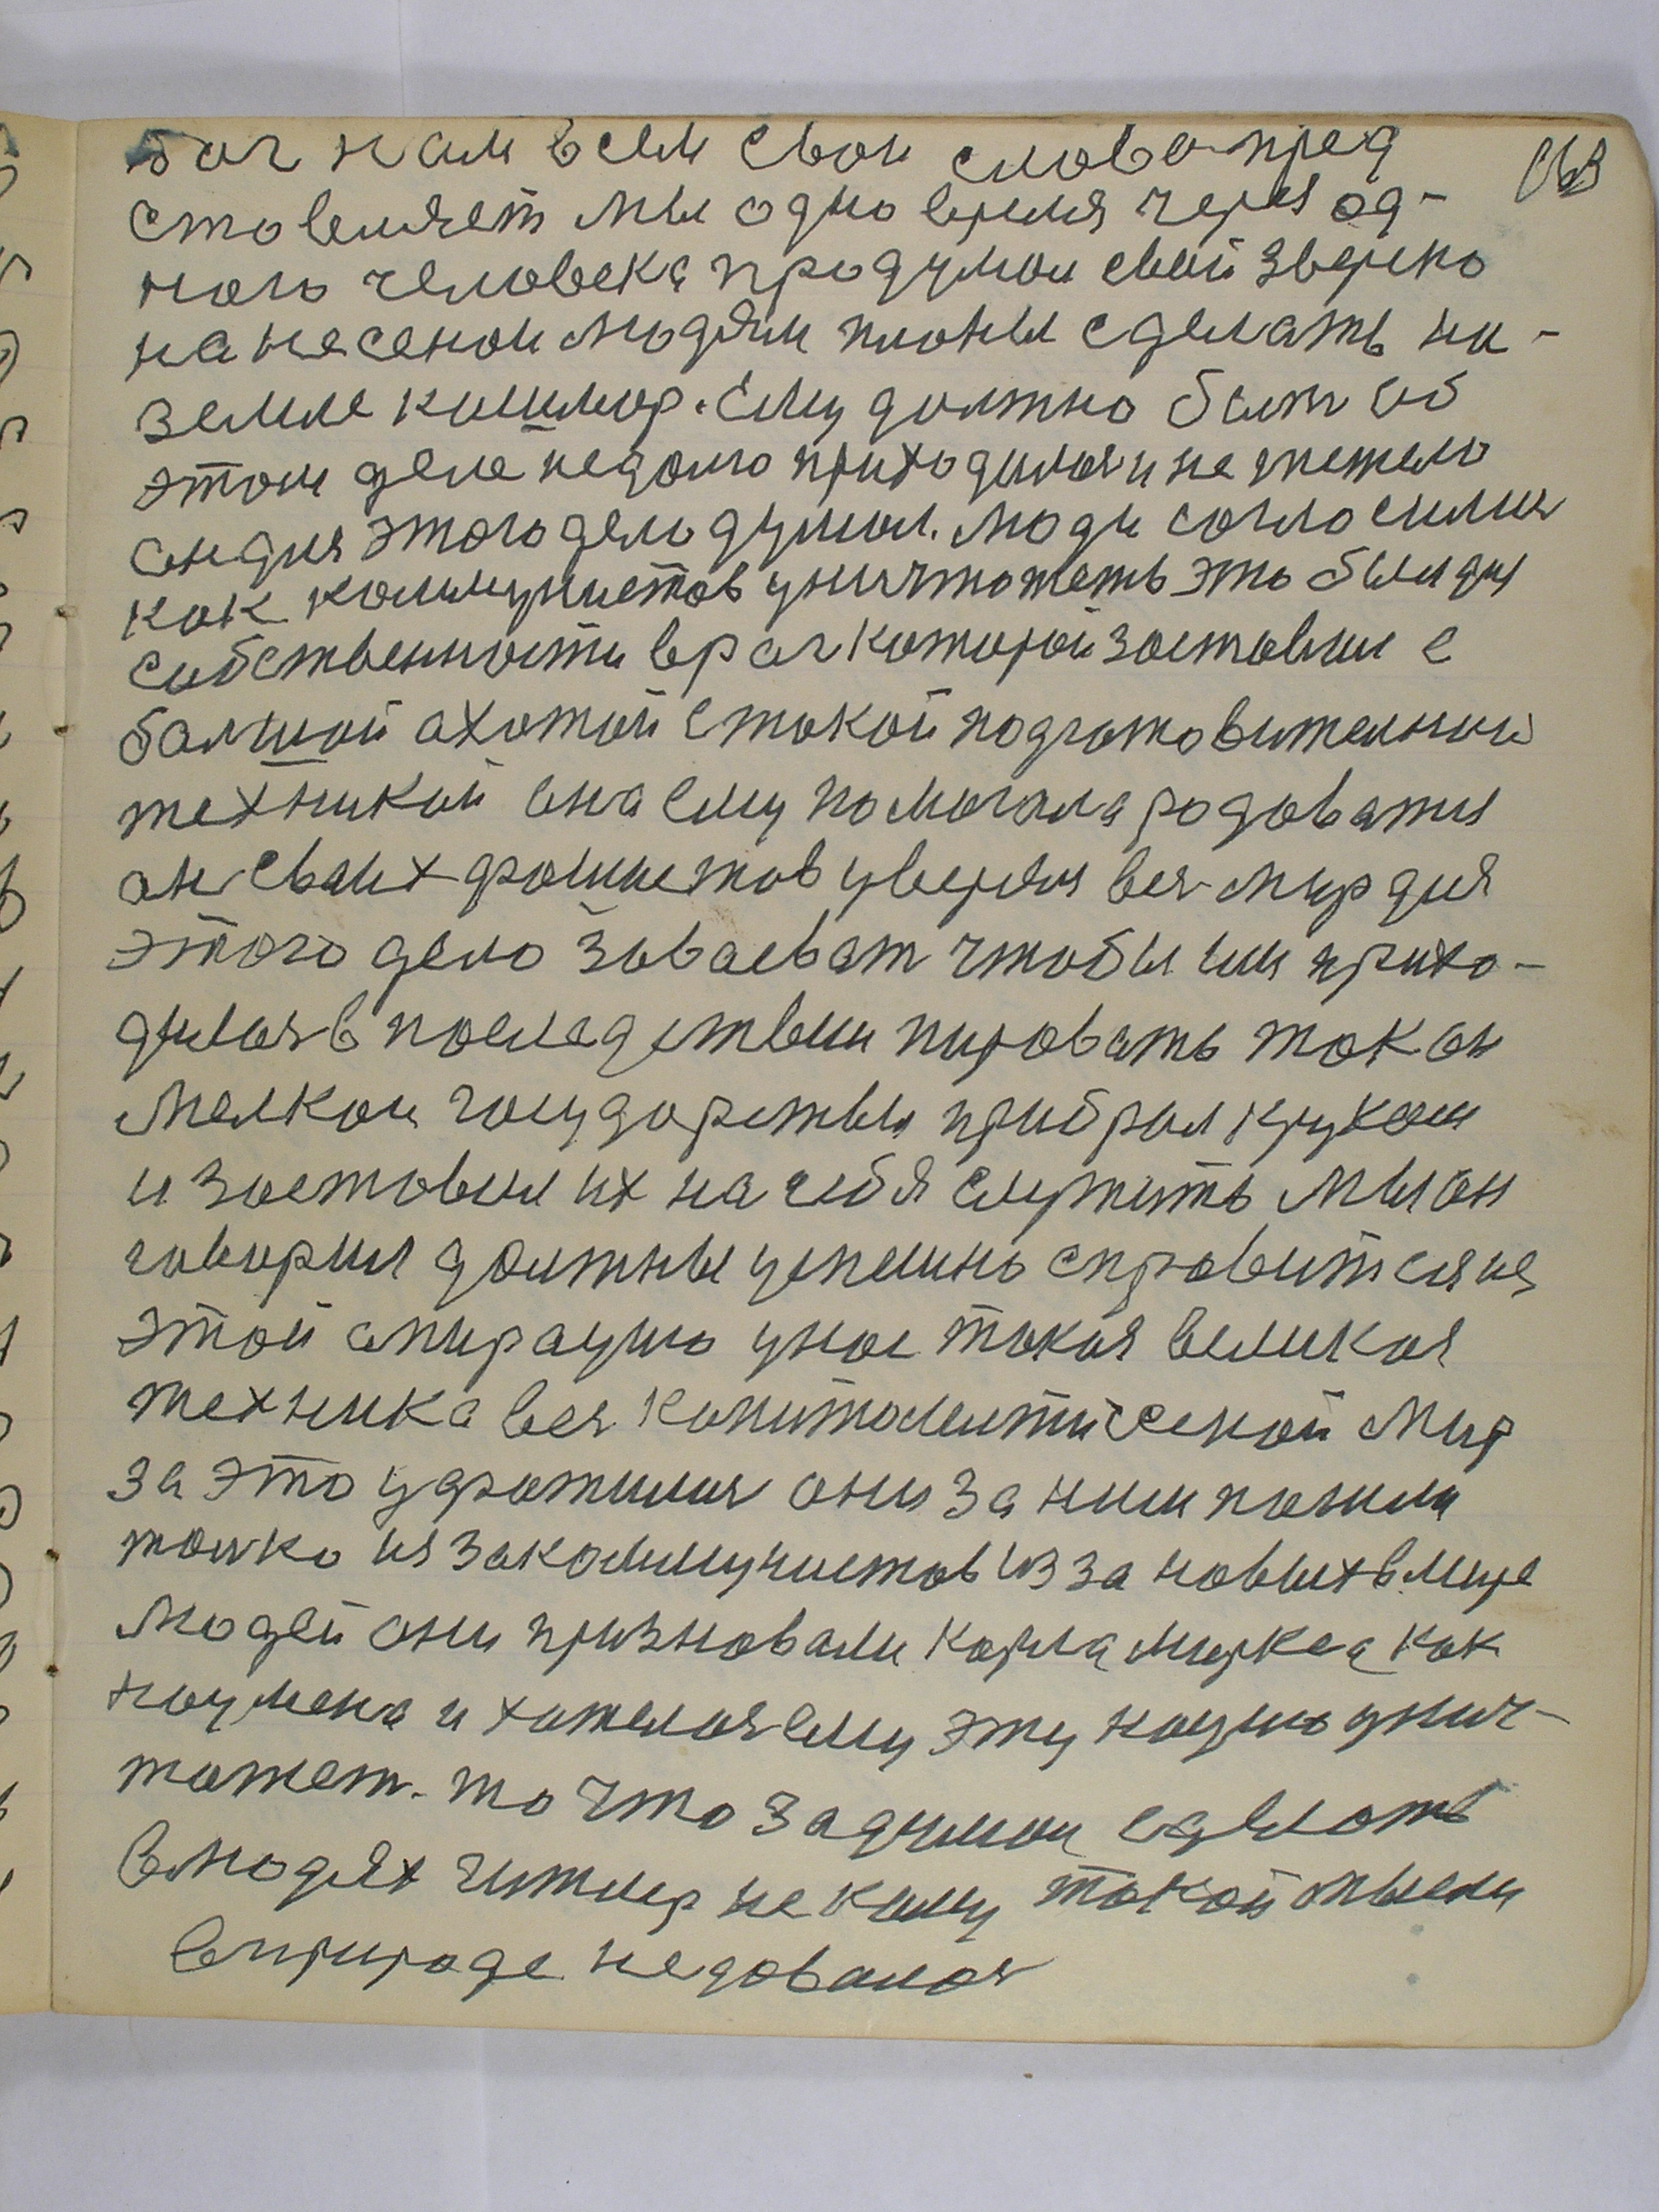 бог нам всем свои слова пред
ставляет мы одно время через од-
ного человека продумал свои зверско
нанесеной людям планы сделать на-
земле кашмар. Ему должно быт об
этом деле недолго приходился и не тежело
он для этого дело думал. люди согласился
как коммунистов уничтожеть это был для
собственности враг которой заставил с
большой ахотой с такой подготовителной
техникой она ему помогала радоватя
он своих фашистов уверял вся мир для
этого дело заваеват чтобы им прихо-
дился в последствии пировать так он
мелкои государствы прибрал крукам
и заставил их на себя служить мы он
говорил должны успешно справится на
этой опирацию унас такая великая
техника вся капиталистической мир
за это ударожился они за ним пошли
толко из закоммунистов из за новых в мире
людей они признавали карла маркса как
наумена и хателоя ему эту нацию унич-
тажет. то что задумал сделать
влюдях гитлер не кому такой мысли
вприроде недавался